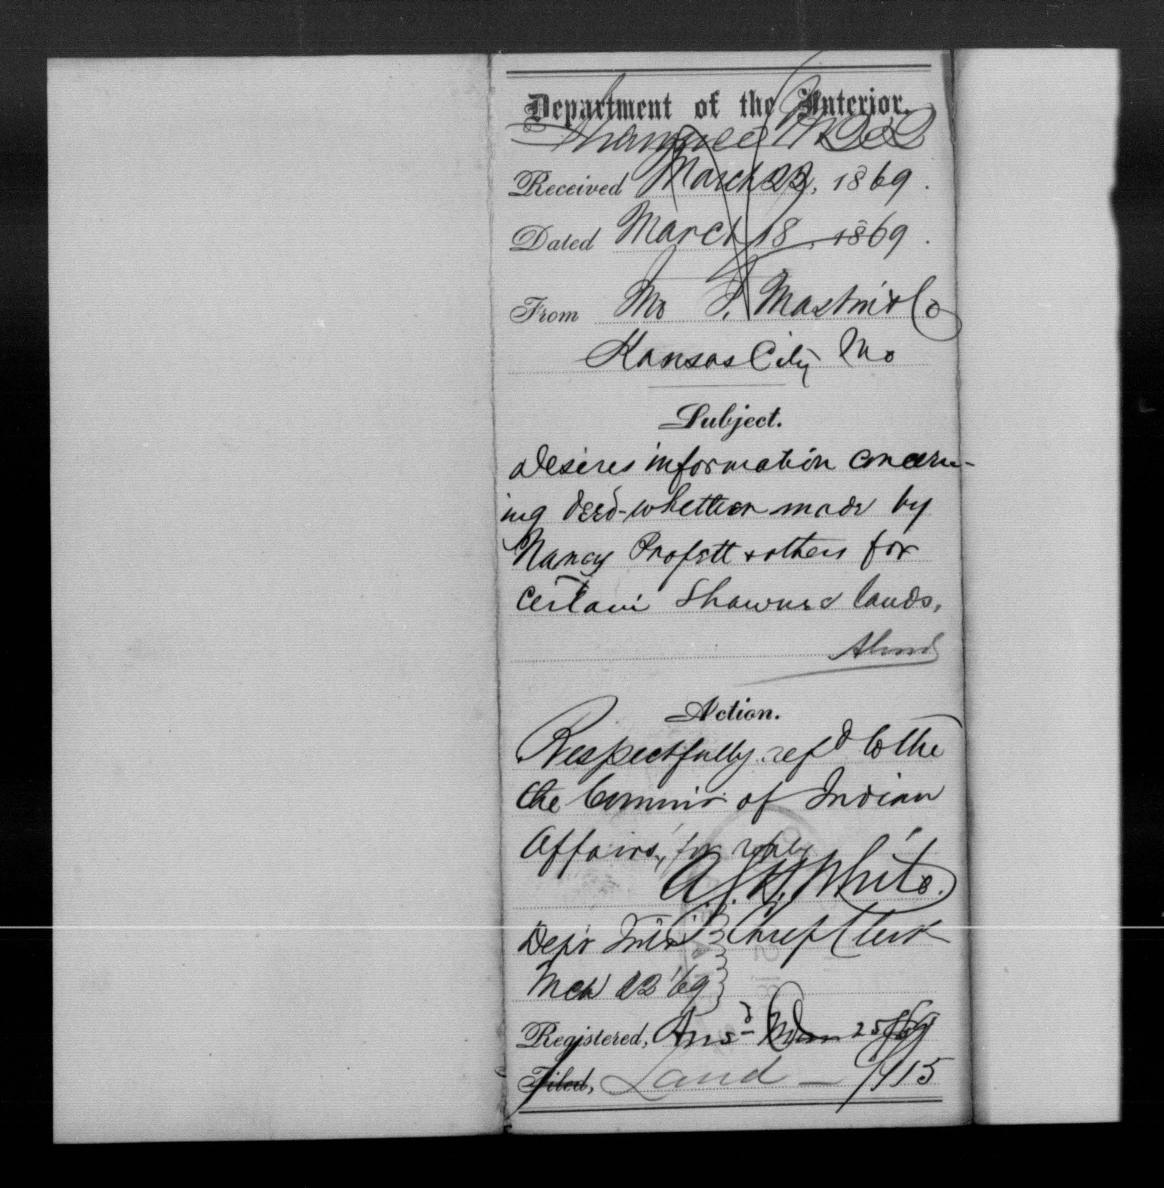 Department of the Interior.
Shawnee
Received March 22, 1869.
Dated March 18, 1869.
From Mo T. Mastin & Co
Kansas City Mo
Subject.
Desires information concern-
ing deed-whether made by
Nancy Profett & others for
certain Shawnee lands.
Action.
Respectfully refd to the
the Commir of Indian
Affairs, for reply
A. S. H. White.
Dept Intr Chief Clerk
Mch 22 '69
Registered, Ansd Mar 25/69
Filed, Land